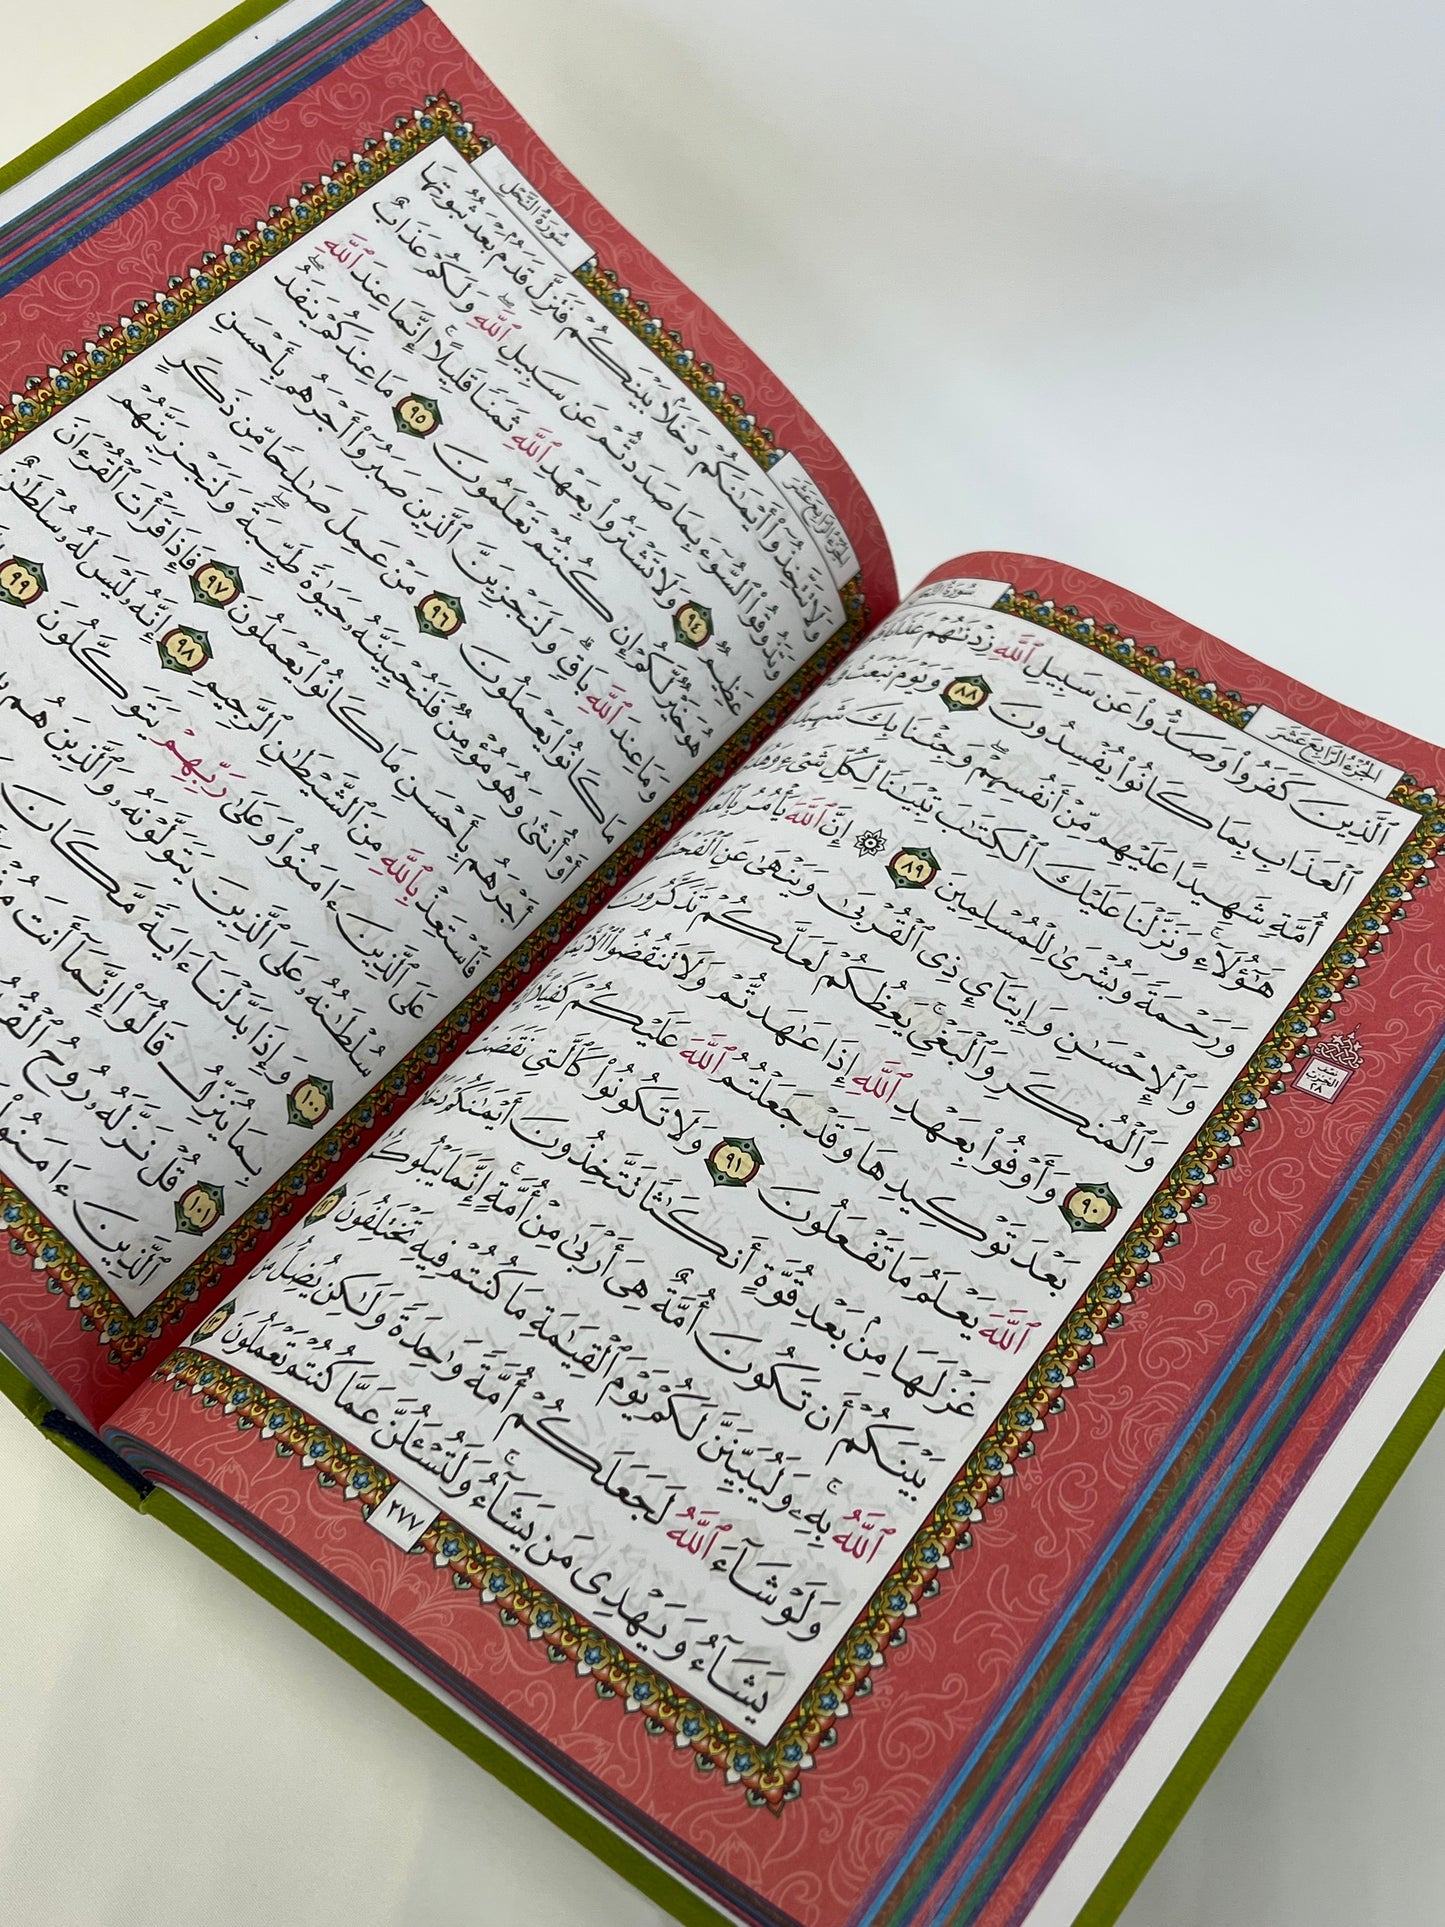 سُورَةُ النَّحْلِ
الجُزْءُ الرَّابِعَ عَشَرَ
ٱلَّذِينَ كَفَرُوا۟ وَصَدُّوا۟ عَن سَبِيلِ ٱللَّهِ زِدْنَٰهُمْ عَذَابًا
ٱلْعَذَابِ بِمَا كَانُوا۟ يُفْسِدُونَ ٨٨ وَيَوْمَ نَبْعَثُ
أُمَّةٍ شَهِيدًا عَلَيْهِم مِّنْ أَنفُسِهِمْ ۖ وَجِئْنَا بِكَ شَهِيدًا
هَٰٓؤُلَآءِ ۚ وَنَزَّلْنَا عَلَيْكَ ٱلْكِتَٰبَ تِبْيَٰنًا لِّكُلِّ شَىْءٍ وَهُدًى
وَرَحْمَةً وَبُشْرَىٰ لِلْمُسْلِمِينَ ٨٩ ۞ إِنَّ ٱللَّهَ يَأْمُرُ
وَٱلْإِحْسَٰنِ وَإِيتَآئِ ذِى ٱلْقُرْبَىٰ وَيَنْهَىٰ عَنِ ٱلْفَحْشَآءِ
وَٱلْمُنكَرِ وَٱلْبَغْىِ ۚ يَعِظُكُمْ لَعَلَّكُمْ تَذَكَّرُونَ
٩٠ وَأَوْفُوا۟ بِعَهْدِ ٱللَّهِ إِذَا عَٰهَدتُّمْ وَلَا تَنقُضُوا۟ ٱلْأَيْمَٰنَ
بَعْدَ تَوْكِيدِهَا وَقَدْ جَعَلْتُمُ ٱللَّهَ عَلَيْكُمْ كَفِيلًا ۚ
ٱللَّهَ يَعْلَمُ مَا تَفْعَلُونَ ٩١ وَلَا تَكُونُوا۟ كَٱلَّتِى نَقَضَتْ
غَزْلَهَا مِنۢ بَعْدِ قُوَّةٍ أَنكَٰثًا تَتَّخِذُونَ أَيْمَٰنَكُمْ دَخَلًۢا
بَيْنَكُمْ أَن تَكُونَ أُمَّةٌ هِىَ أَرْبَىٰ مِنْ أُمَّةٍ ۚ إِنَّمَا يَبْلُوكُمُ
ٱللَّهُ بِهِۦ ۚ وَلَيُبَيِّنَنَّ لَكُمْ يَوْمَ ٱلْقِيَٰمَةِ مَا كُنتُمْ فِيهِ تَخْتَلِفُونَ ٩٢
وَلَوْ شَآءَ ٱللَّهُ لَجَعَلَكُمْ أُمَّةً وَٰحِدَةً وَلَٰكِن يُضِلُّ مَن
يَشَآءُ وَيَهْدِى مَن يَشَآءُ ۚ وَلَتُسْـَٔلُنَّ عَمَّا كُنتُمْ تَعْمَلُونَ ٩٣
نصف
الحزب
٢٨
٢٧٧
سُورَةُ النَّحْلِ
الجُزْءُ الرَّابِعَ عَشَرَ
وَلَا تَتَّخِذُوٓا۟ أَيْمَٰنَكُمْ دَخَلًۢا بَيْنَكُمْ فَتَزِلَّ قَدَمٌۢ بَعْدَ ثُبُوتِهَا
وَتَذُوقُوا۟ ٱلسُّوٓءَ بِمَا صَدَدتُّمْ عَن سَبِيلِ ٱللَّهِ ۖ وَلَكُمْ عَذَابٌ
عَظِيمٌ ٩٤ وَلَا تَشْتَرُوا۟ بِعَهْدِ ٱللَّهِ ثَمَنًا قَلِيلًا ۚ إِنَّمَا عِندَ ٱللَّهِ
هُوَ خَيْرٌ لَّكُمْ إِن كُنتُمْ تَعْلَمُونَ ٩٥ مَا عِندَكُمْ يَنفَدُ ۖ
وَمَا عِندَ ٱللَّهِ بَاقٍ ۗ وَلَنَجْزِيَنَّ ٱلَّذِينَ صَبَرُوٓا۟ أَجْرَهُم بِأَحْسَنِ
مَا كَانُوا۟ يَعْمَلُونَ ٩٦ مَنْ عَمِلَ صَٰلِحًا مِّن ذَكَرٍ
أَوْ أُنثَىٰ وَهُوَ مُؤْمِنٌ فَلَنُحْيِيَنَّهُۥ حَيَوٰةً طَيِّبَةً ۖ وَلَنَجْزِيَنَّهُمْ
أَجْرَهُم بِأَحْسَنِ مَا كَانُوا۟ يَعْمَلُونَ ٩٧ فَإِذَا قَرَأْتَ ٱلْقُرْءَانَ
فَٱسْتَعِذْ بِٱللَّهِ مِنَ ٱلشَّيْطَٰنِ ٱلرَّجِيمِ ٩٨ إِنَّهُۥ لَيْسَ لَهُۥ سُلْطَٰنٌ
عَلَى ٱلَّذِينَ ءَامَنُوا۟ وَعَلَىٰ رَبِّهِمْ يَتَوَكَّلُونَ ٩٩
سُلْطَٰنُهُۥ عَلَى ٱلَّذِينَ يَتَوَلَّوْنَهُۥ وَٱلَّذِينَ هُم
١٠٠ وَإِذَا بَدَّلْنَآ ءَايَةً مَّكَانَ
بِمَا يُنَزِّلُ قَالُوٓا۟ إِنَّمَآ أَنتَ
١٠١ قُلْ نَزَّلَهُۥ رُوحُ
ٱلَّذِينَ ءَامَنُوا۟